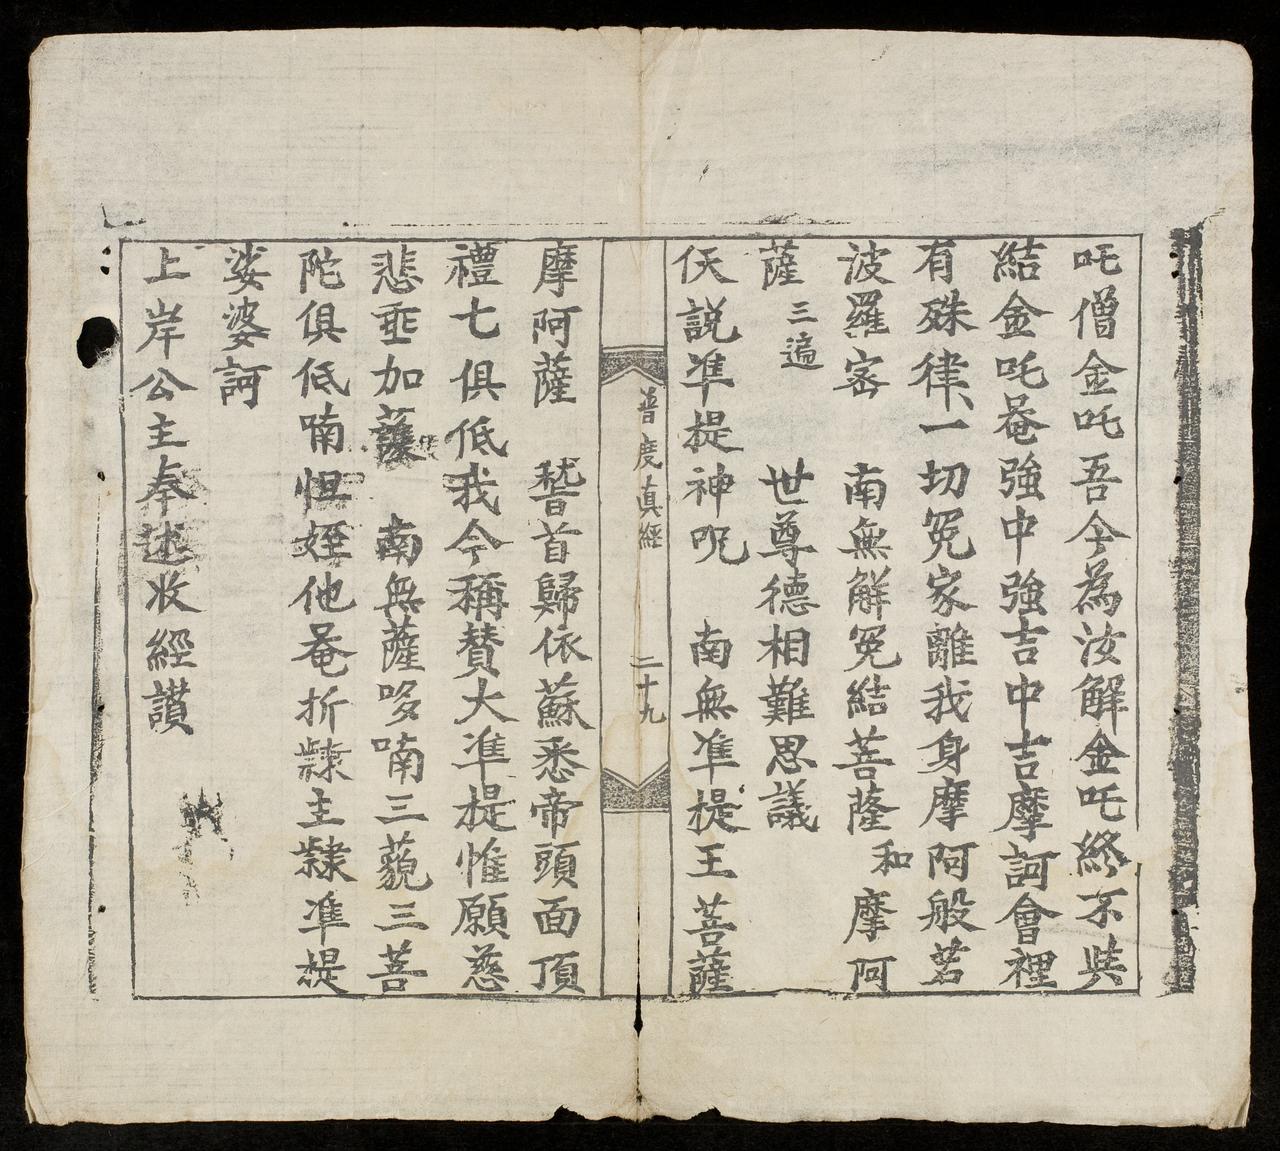 吒僧金吒吾今為汝解金吒終不與
結金吒菴強中強吉中吉摩訶會裡
有殊律、一切冤家離我身摩阿般若
波羅密 南無解冤結菩薩 和 摩阿
薩 三遍 世尊德相難思議
仸説準提神呪 南無準提王菩薩
普度真經 二十九
摩阿薩 稽首歸依蘇悉帝頭面頂
禮七俱低我今稱賛大準提惟願慈
悲垂加護 南無薩哆喃三藐三菩
陀俱低喃怛姪他菴折隸主隸準提
娑婆訶
上岸公主奉述收經讃